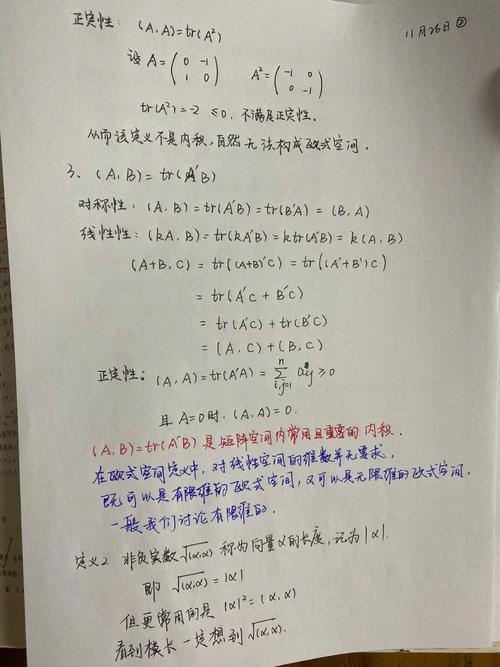 正定性: (A, A)=tr(A²)
11月26日 ②
设 A=(0 -1
1 0) A²=(-1 0
0 -1)
tr(A²)=-2 ≤0, 不满足正定性.
从而该定义不是内积, 自然无法构成欧式空间.
3、(A, B)=tr(A'B)
对称性: (A, B)=tr(A'B)=tr(B'A)=(B, A)
线性性: (kA, B)=tr(kA'B)=ktr(A'B)=k(A, B).
(A+B, C)=tr((A+B)'C)=tr((A'+B')C)
=tr(A'C+B'C)
=tr(A'C)+tr(B'C)
=(A, C)+(B, C)
正定性: (A, A)=tr(A'A)=∑ⁿᵢ,ⱼ₌₁ a²ij ≥0
且 A=0时. (A, A)=0.
(A, B)=tr(A'B) 是矩阵空间内常用且重要的内积.
在欧式空间定义中, 对线性空间的维数并无要求,
既可以是有限维的欧式空间, 又可以是无限维的欧式空间.
一般我们讨论有限维的.
定义2 非负实数√(α,α) 称为向量α的长度, 记为|α|.
即 √(α,α)=|α|
但更常用的是 |α|²=(α, α)
看到模长一定想到√(α,α).